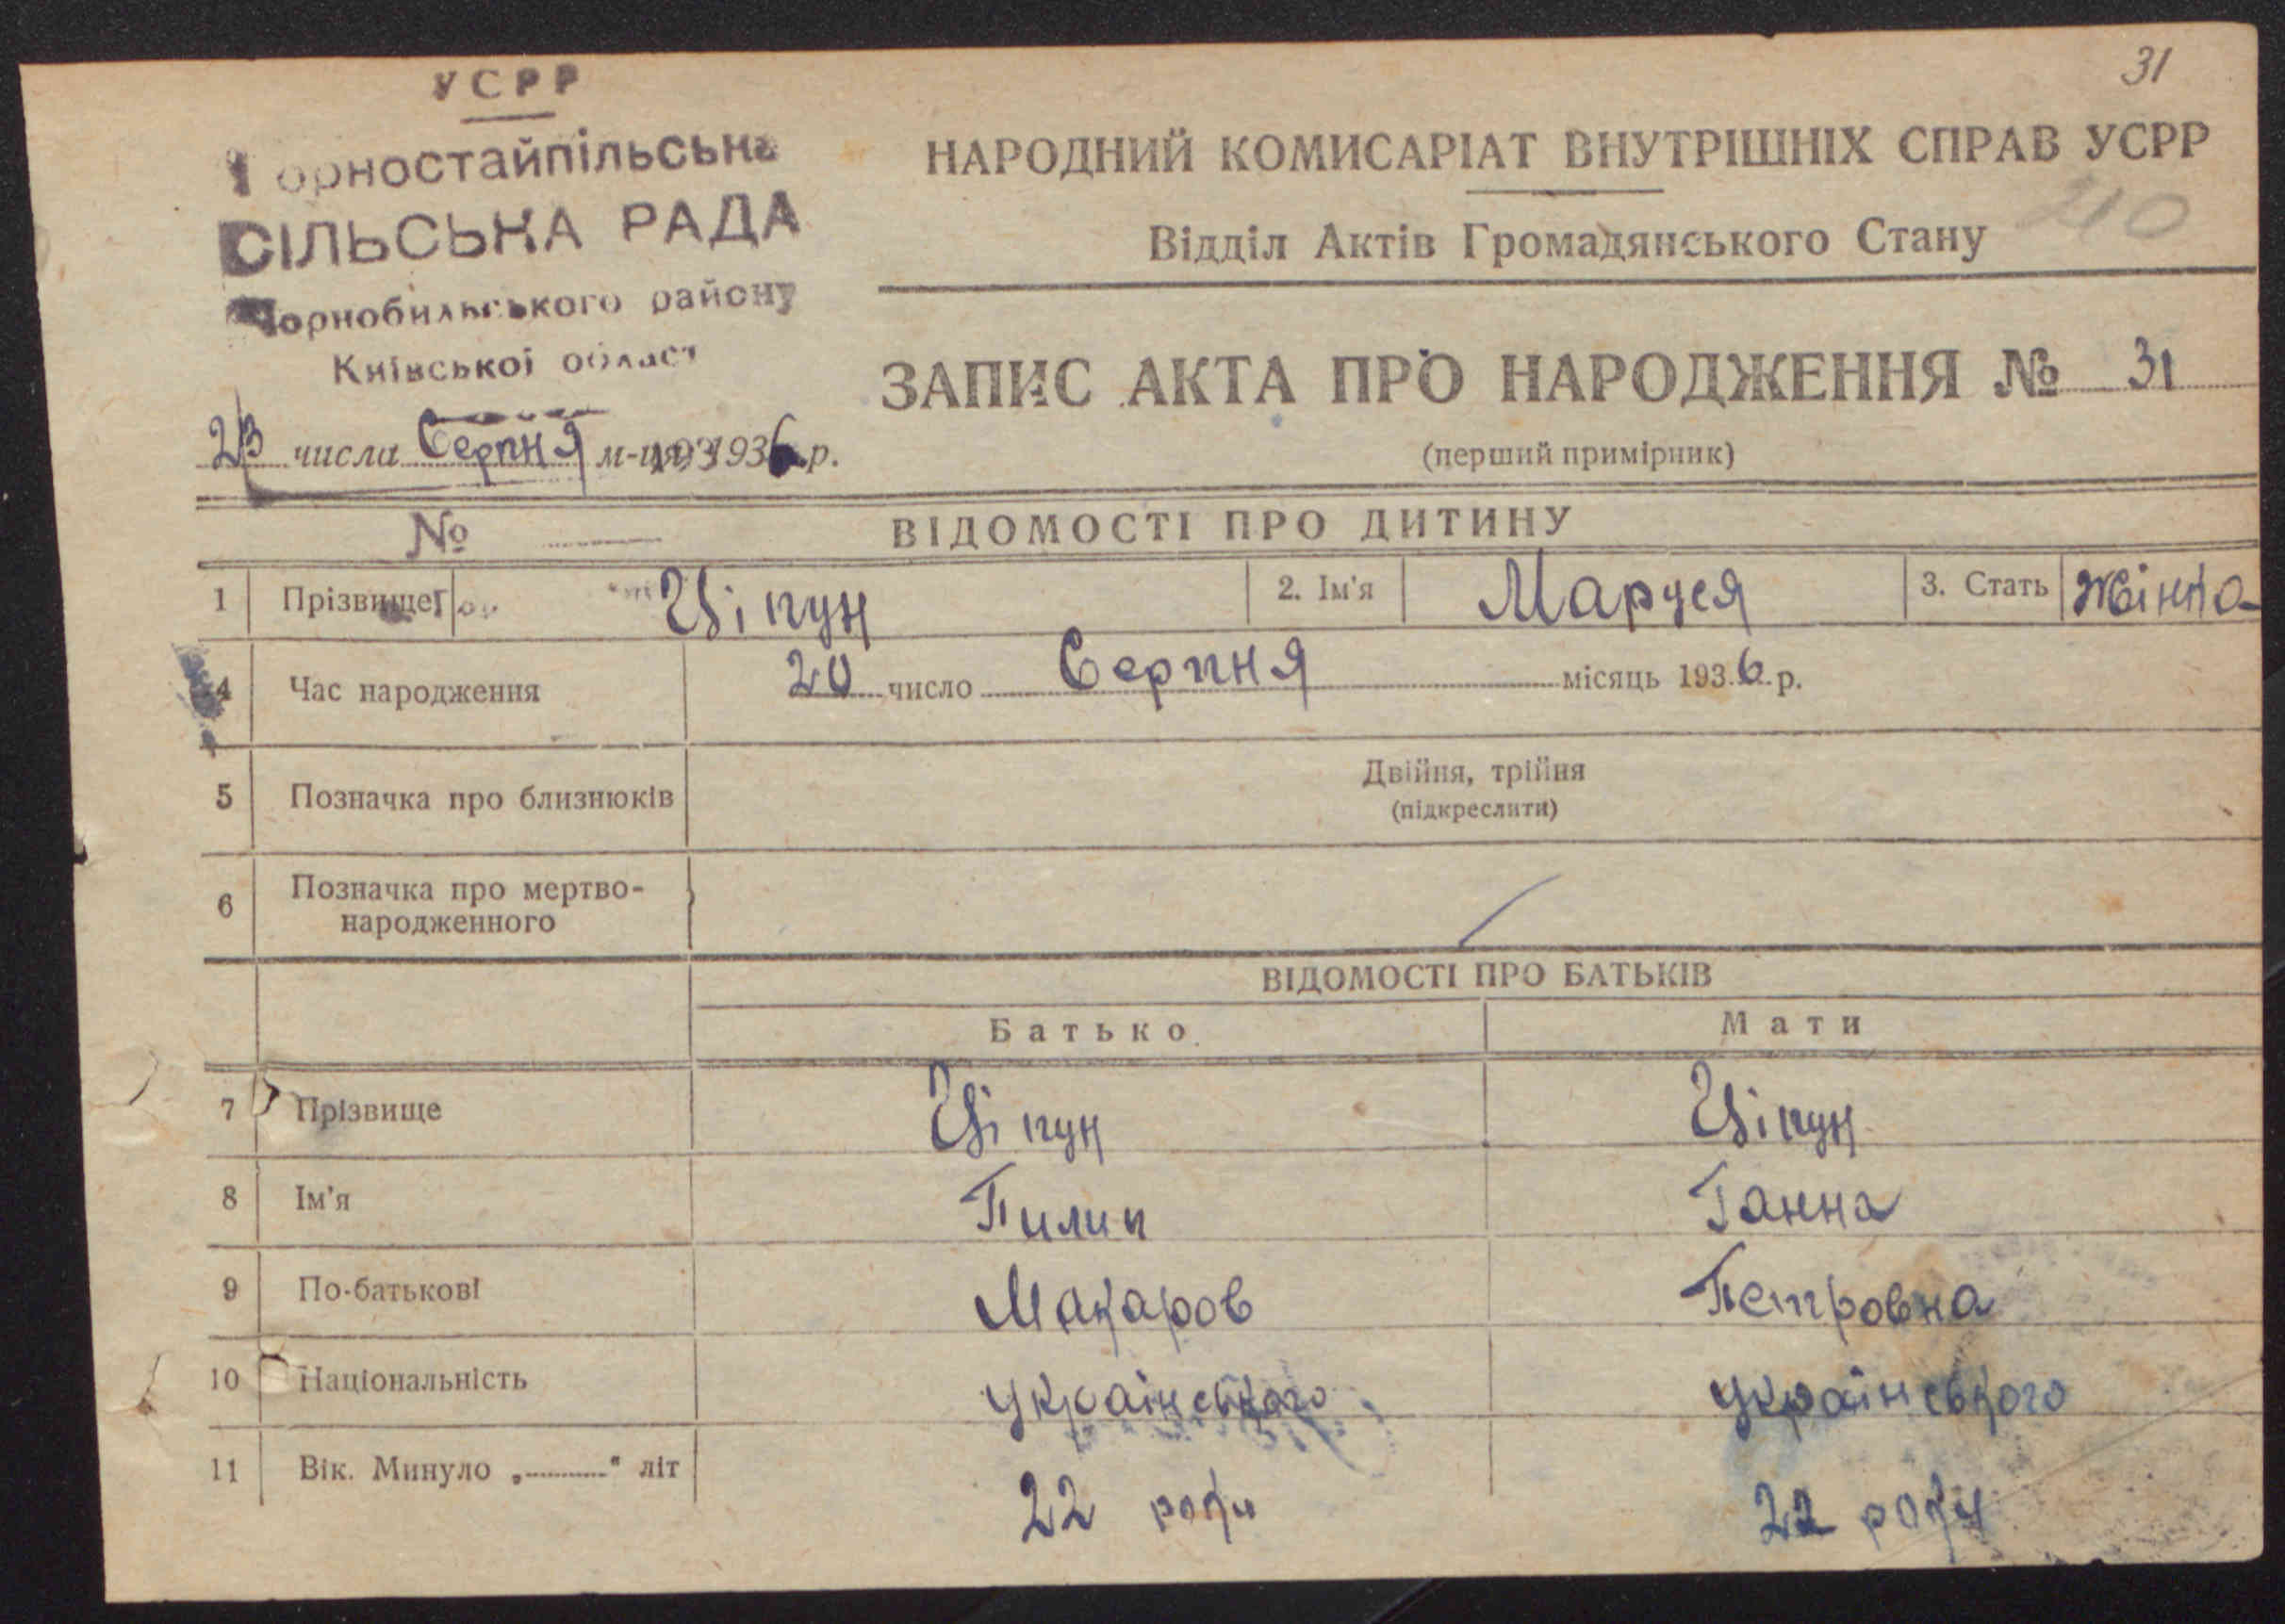 31
УСРР
Горностайпільська
СІЛЬСЬКА РАДА
Чорнобильського району
Київської област
23 числа Серпня м-ця 1936 р.
№
НАРОДНИЙ КОМИСАРІАТ ВНУТРІШНІХ СПРАВ УСРР
210
Відділ Актів Громадянського Стану
ЗАПИС АКТА ПРО НАРОДЖЕННЯ № 31
(перший примірник)
ВІДОМОСТІ ПРО ДИТИНУ
1 Прізвище Ціпун 2. Ім'я Маруся 3. Стать Жінка
4 Час народження 20 число Серпня місяць 1936 р.
5 Позначка про близнюків Двійня, трійня
(підкреслити)
6 Позначка про мертво-
народженного
ВІДОМОСТІ ПРО БАТЬКІВ
Батько Мати
7 Прізвище Ціпун Ціпун
8 Ім'я Пилип Ганна
9 По-батькові Макаров Петровна
10 Національність українського українського
11 Вік. Минуло „ “ літ 22 роки 22 роки